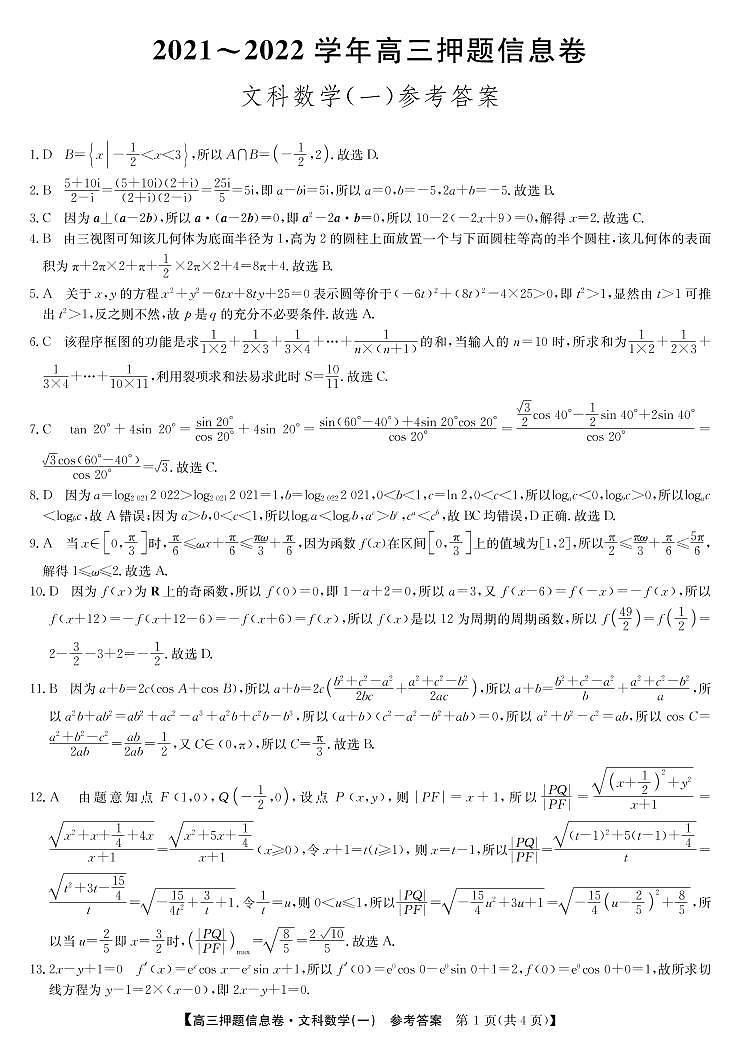 2021～2022 学年高三押题信息卷
文科数学(一)参考答案
1. D　B={x|-1/2<x<3},所以 A∩B=(-1/2,2).故选 D.
2. B　(5+10i)/(2-i)=(5+10i)(2+i)/((2+i)(2-i))=25i/5=5i,即 a-bi=5i,所以 a=0,b=-5,2a+b=-5.故选 B.
3. C　因为 a⊥(a-2b),所以 a·(a-2b)=0,即 a²-2a·b=0,所以 10-2(-2x+9)=0,解得 x=2.故选 C.
4. B　由三视图可知该几何体为底面半径为 1,高为 2 的圆柱上面放置一个与下面圆柱等高的半个圆柱,该几何体的表面
积为 π+2π×2+π+1/2×2π×2+4=8π+4.故选 B.
5. A　关于 x,y 的方程 x²+y²-6tx+8ty+25=0 表示圆等价于(-6t)²+(8t)²-4×25>0,即 t²>1,显然由 t>1 可推
出 t²>1,反之则不然,故 p 是 q 的充分不必要条件.故选 A.
6. C　该程序框图的功能是求 1/(1×2)+1/(2×3)+1/(3×4)+…+1/(n×(n+1)) 的和,当输入的 n=10 时,所求和为 1/(1×2)+1/(2×3)+
1/(3×4)+…+1/(10×11),利用裂项求和法易求此时 S=10/11.故选 C.
7. C　tan 20°+4sin 20°=sin 20°/cos 20°+4sin 20°=(sin(60°-40°)+4sin 20°cos 20°)/cos 20°=(√3/2 cos 40°-1/2 sin 40°+2sin 40°)/cos 20°=
√3cos(60°-40°)/cos 20°=√3.故选 C.
8. D　因为 a=log₂ ₀₂₁2 022>log₂ ₀₂₁2 021=1,b=log₂ ₀₂₂2 021,0<b<1,c=ln 2,0<c<1,所以logₐc<0,log_b c>0,所以logₐc
<log_b c,故 A 错误;因为 a>b,0<c<1,所以log_c a<log_c b,a^c>b^c,c^a<c^b,故 BC 均错误,D 正确.故选 D.
9. A　当 x∈[0,π/3]时,π/6≤ωx+π/6≤πω/3+π/6,因为函数 f(x)在区间[0,π/3]上的值域为[1,2],所以 π/2≤πω/3+π/6≤5π/6,
解得 1≤ω≤2.故选 A.
10. D　因为 f(x)为 R 上的奇函数,所以 f(0)=0,即 1-a+2=0,所以 a=3,又 f(x-6)=f(-x)=-f(x),所以
f(x+12)=-f(x+12-6)=-f(x+6)=f(x),所以 f(x)是以 12 为周期的周期函数,所以 f(49/2)=f(1/2)=
2-3/2-3+2=-1/2.故选 D.
11. B　因为 a+b=2c(cos A+cos B),所以 a+b=2c((b²+c²-a²)/2bc+(a²+c²-b²)/2ac),所以 a+b=(b²+c²-a²)/b+(a²+c²-b²)/a,所
以 a²b+ab²=ab²+ac²-a³+a²b+c²b-b³,所以(a+b)(c²-a²-b²+ab)=0,所以 a²+b²-c²=ab,所以 cos C=
(a²+b²-c²)/2ab=ab/2ab=1/2,又 C∈(0,π),所以 C=π/3.故选 B.
12. A　由题意知点 F(1,0),Q(-1/2,0),设点 P(x,y),则|PF|=x+1,所以|PQ|/|PF|=√((x+1/2)²+y²)/(x+1)=
√(x²+x+1/4+4x)/(x+1)=√(x²+5x+1/4)/(x+1)(x≥0),令 x+1=t(t≥1),则 x=t-1,所以|PQ|/|PF|=√((t-1)²+5(t-1)+1/4)/t=
√(t²+3t-15/4)/t=√(-15/4t²+3/t+1).令 1/t=u,则 0<u≤1,所以|PQ|/|PF|=√(-15/4 u²+3u+1)=√(-15/4(u-2/5)²+8/5),所
以当 u=2/5 即 x=3/2 时,(|PQ|/|PF|)max=√(8/5)=2√10/5.故选 A.
13. 2x-y+1=0　f′(x)=eˣcos x-eˣsin x+1,所以 f′(0)=e⁰cos 0-e⁰sin 0+1=2,f(0)=e⁰cos 0+0=1,故所求切
线方程为 y-1=2×(x-0),即 2x-y+1=0.
【高三押题信息卷·文科数学(一)　参考答案　第 1 页(共 4 页)】